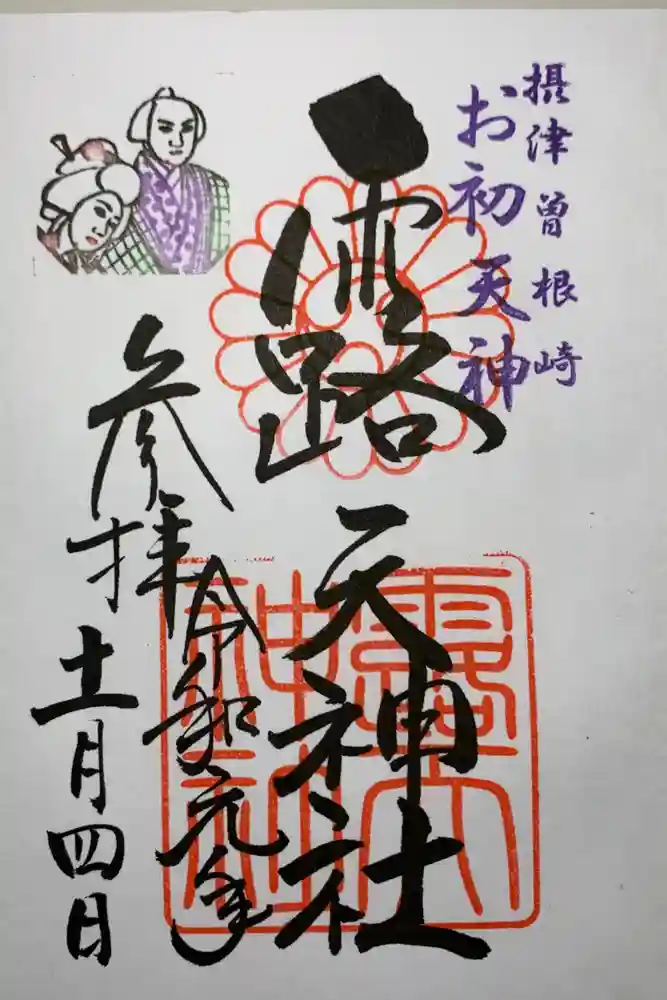 摂津曽根崎
お初天神
露天神社
露天
神社
令和元年
参拝
十一月四日